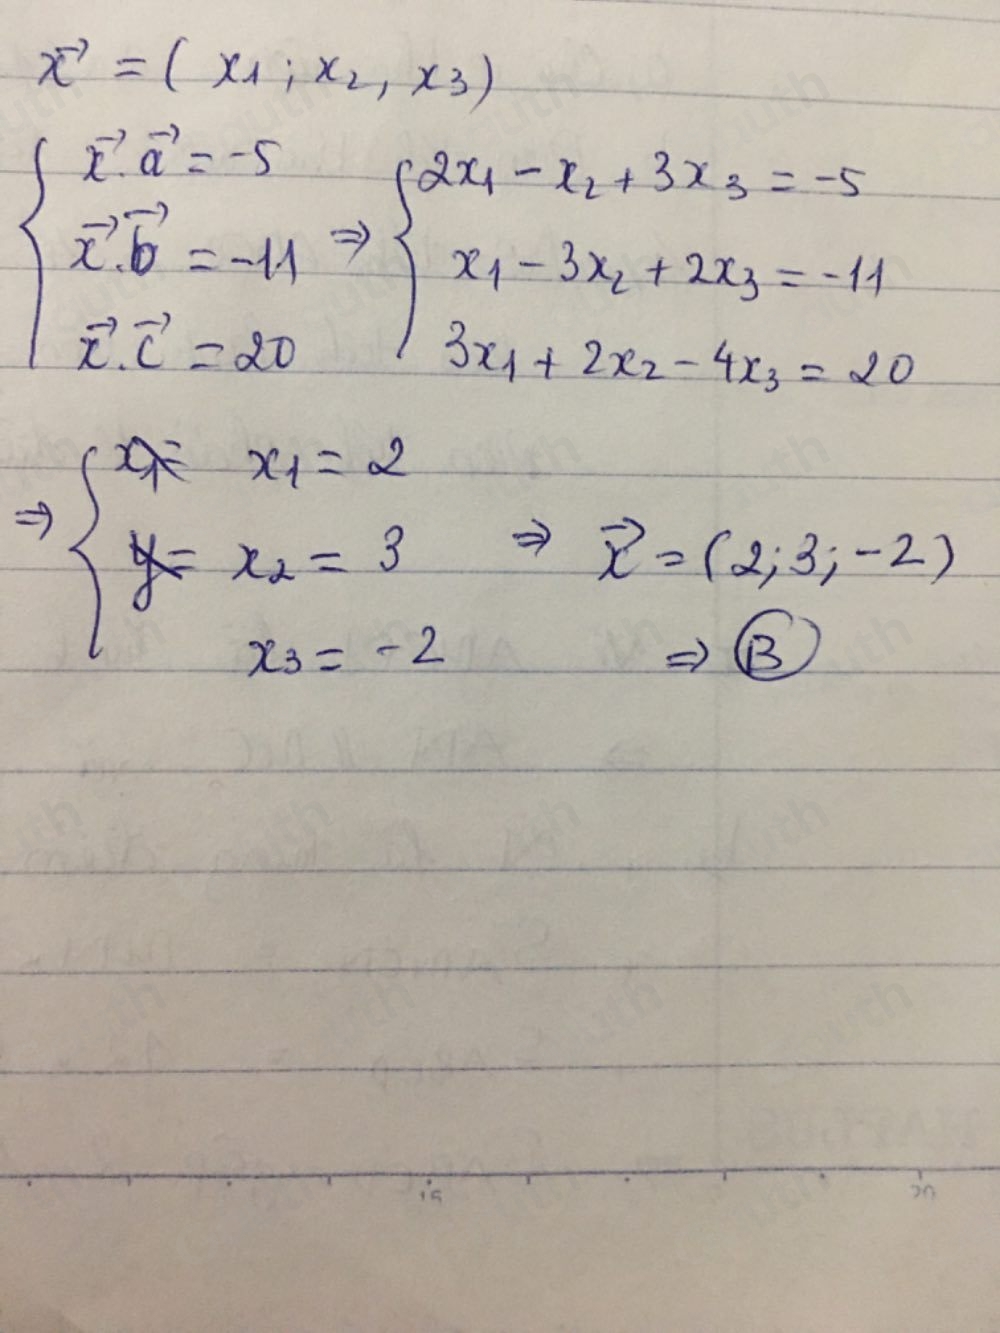 x⃗ = ( x1 ; x2 , x3 )
{ x⃗ . a⃗ = -5
x⃗ . b⃗ = -11
x⃗ . c⃗ = 20
⇒ { 2x1 - x2 + 3x3 = -5
x1 - 3x2 + 2x3 = -11
3x1 + 2x2 - 4x3 = 20
⇒ { x1 = 2
x2 = 3
x3 = -2
⇒ x⃗ = (2; 3; -2)
⇒ B
15 20